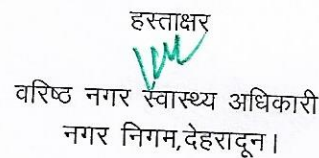 हस्ताक्षर
वरिष्ठ नगर स्वास्थ्य अधिकारी
नगर निगम,देहरादून।